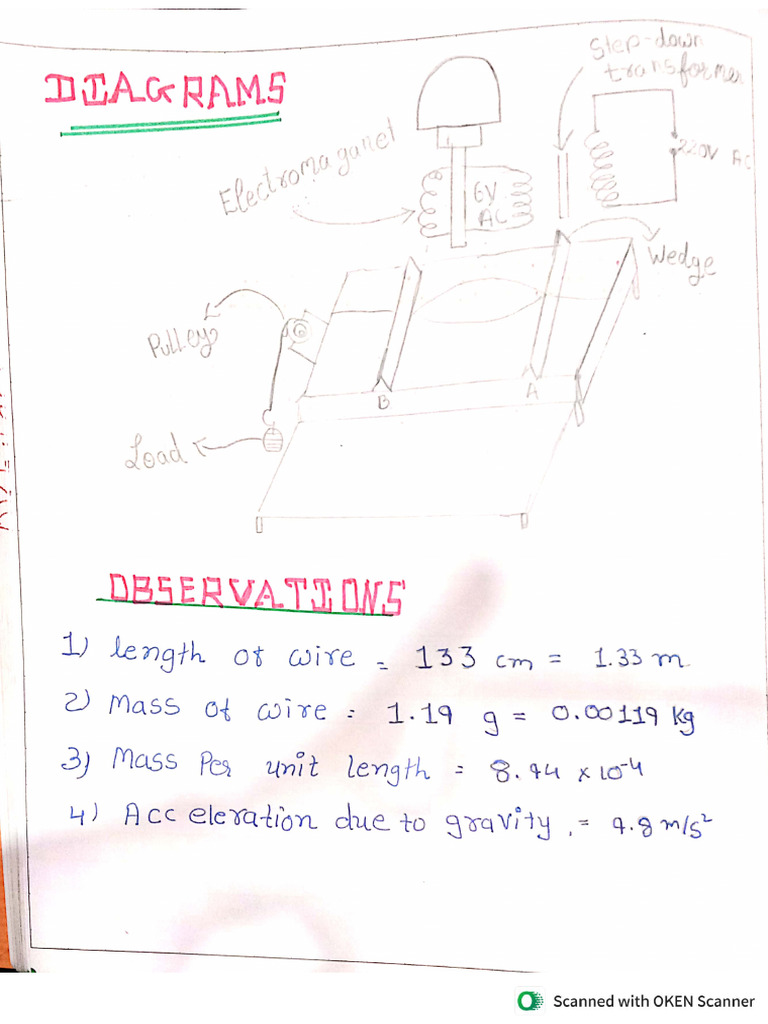 DIAGRAMS
Step-down
transformer
Electromaganet
6V
AC
220V AC
Wedge
Pulley
B
A
Load
OBSERVATIONS
1) length of wire = 133 cm = 1.33 m
2) Mass of wire = 1.19 g = 0.00119 Kg
3) Mass Per unit length = 8.94 x 10⁻⁴
4) Acceleration due to gravity, = 9.8 m/s²
Scanned with OKEN Scanner